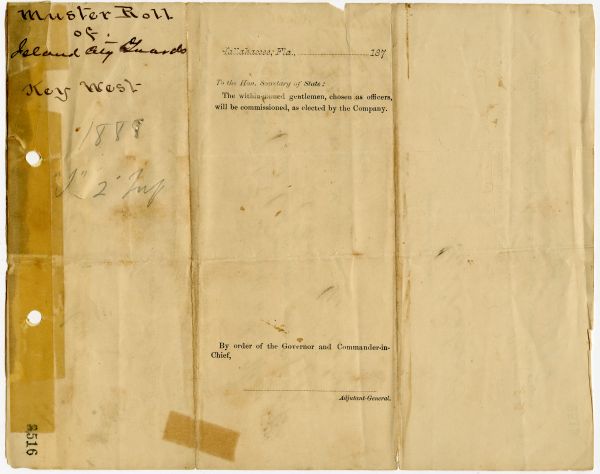 Muster Roll
of
Island City Guards
Key West
1888
"I" 2" Inf
Tallahassee, Fla., 187
To the Hon. Secretary of State:
The within-named gentlemen, chosen as officers,
will be commissioned, as elected by the Company.
By order of the Governor and Commander-in-
Chief,
Adjutant-General.
3516